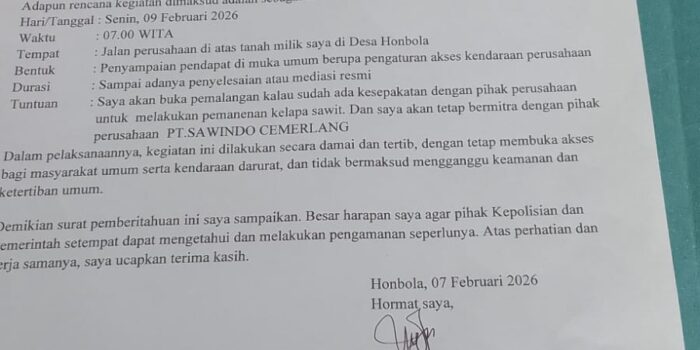 Adapun rencana kegiatan dimaksud adalah
Hari/Tanggal : Senin, 09 Februari 2026
Waktu : 07.00 WITA
Tempat : Jalan perusahaan di atas tanah milik saya di Desa Honbola
Bentuk : Penyampaian pendapat di muka umum berupa pengaturan akses kendaraan perusahaan
Durasi : Sampai adanya penyelesaian atau mediasi resmi
Tuntuan : Saya akan buka pemalangan kalau sudah ada kesepakatan dengan pihak perusahaan
untuk melakukan pemanenan kelapa sawit. Dan saya akan tetap bermitra dengan pihak
perusahaan PT.SAWINDO CEMERLANG
Dalam pelaksanaannya, kegiatan ini dilakukan secara damai dan tertib, dengan tetap membuka akses
bagi masyarakat umum serta kendaraan darurat, dan tidak bermaksud mengganggu keamanan dan
ketertiban umum.
Demikian surat pemberitahuan ini saya sampaikan. Besar harapan saya agar pihak Kepolisian dan
emerintah setempat dapat mengetahui dan melakukan pengamanan seperlunya. Atas perhatian dan
erja samanya, saya ucapkan terima kasih.
Honbola, 07 Februari 2026
Hormat saya,